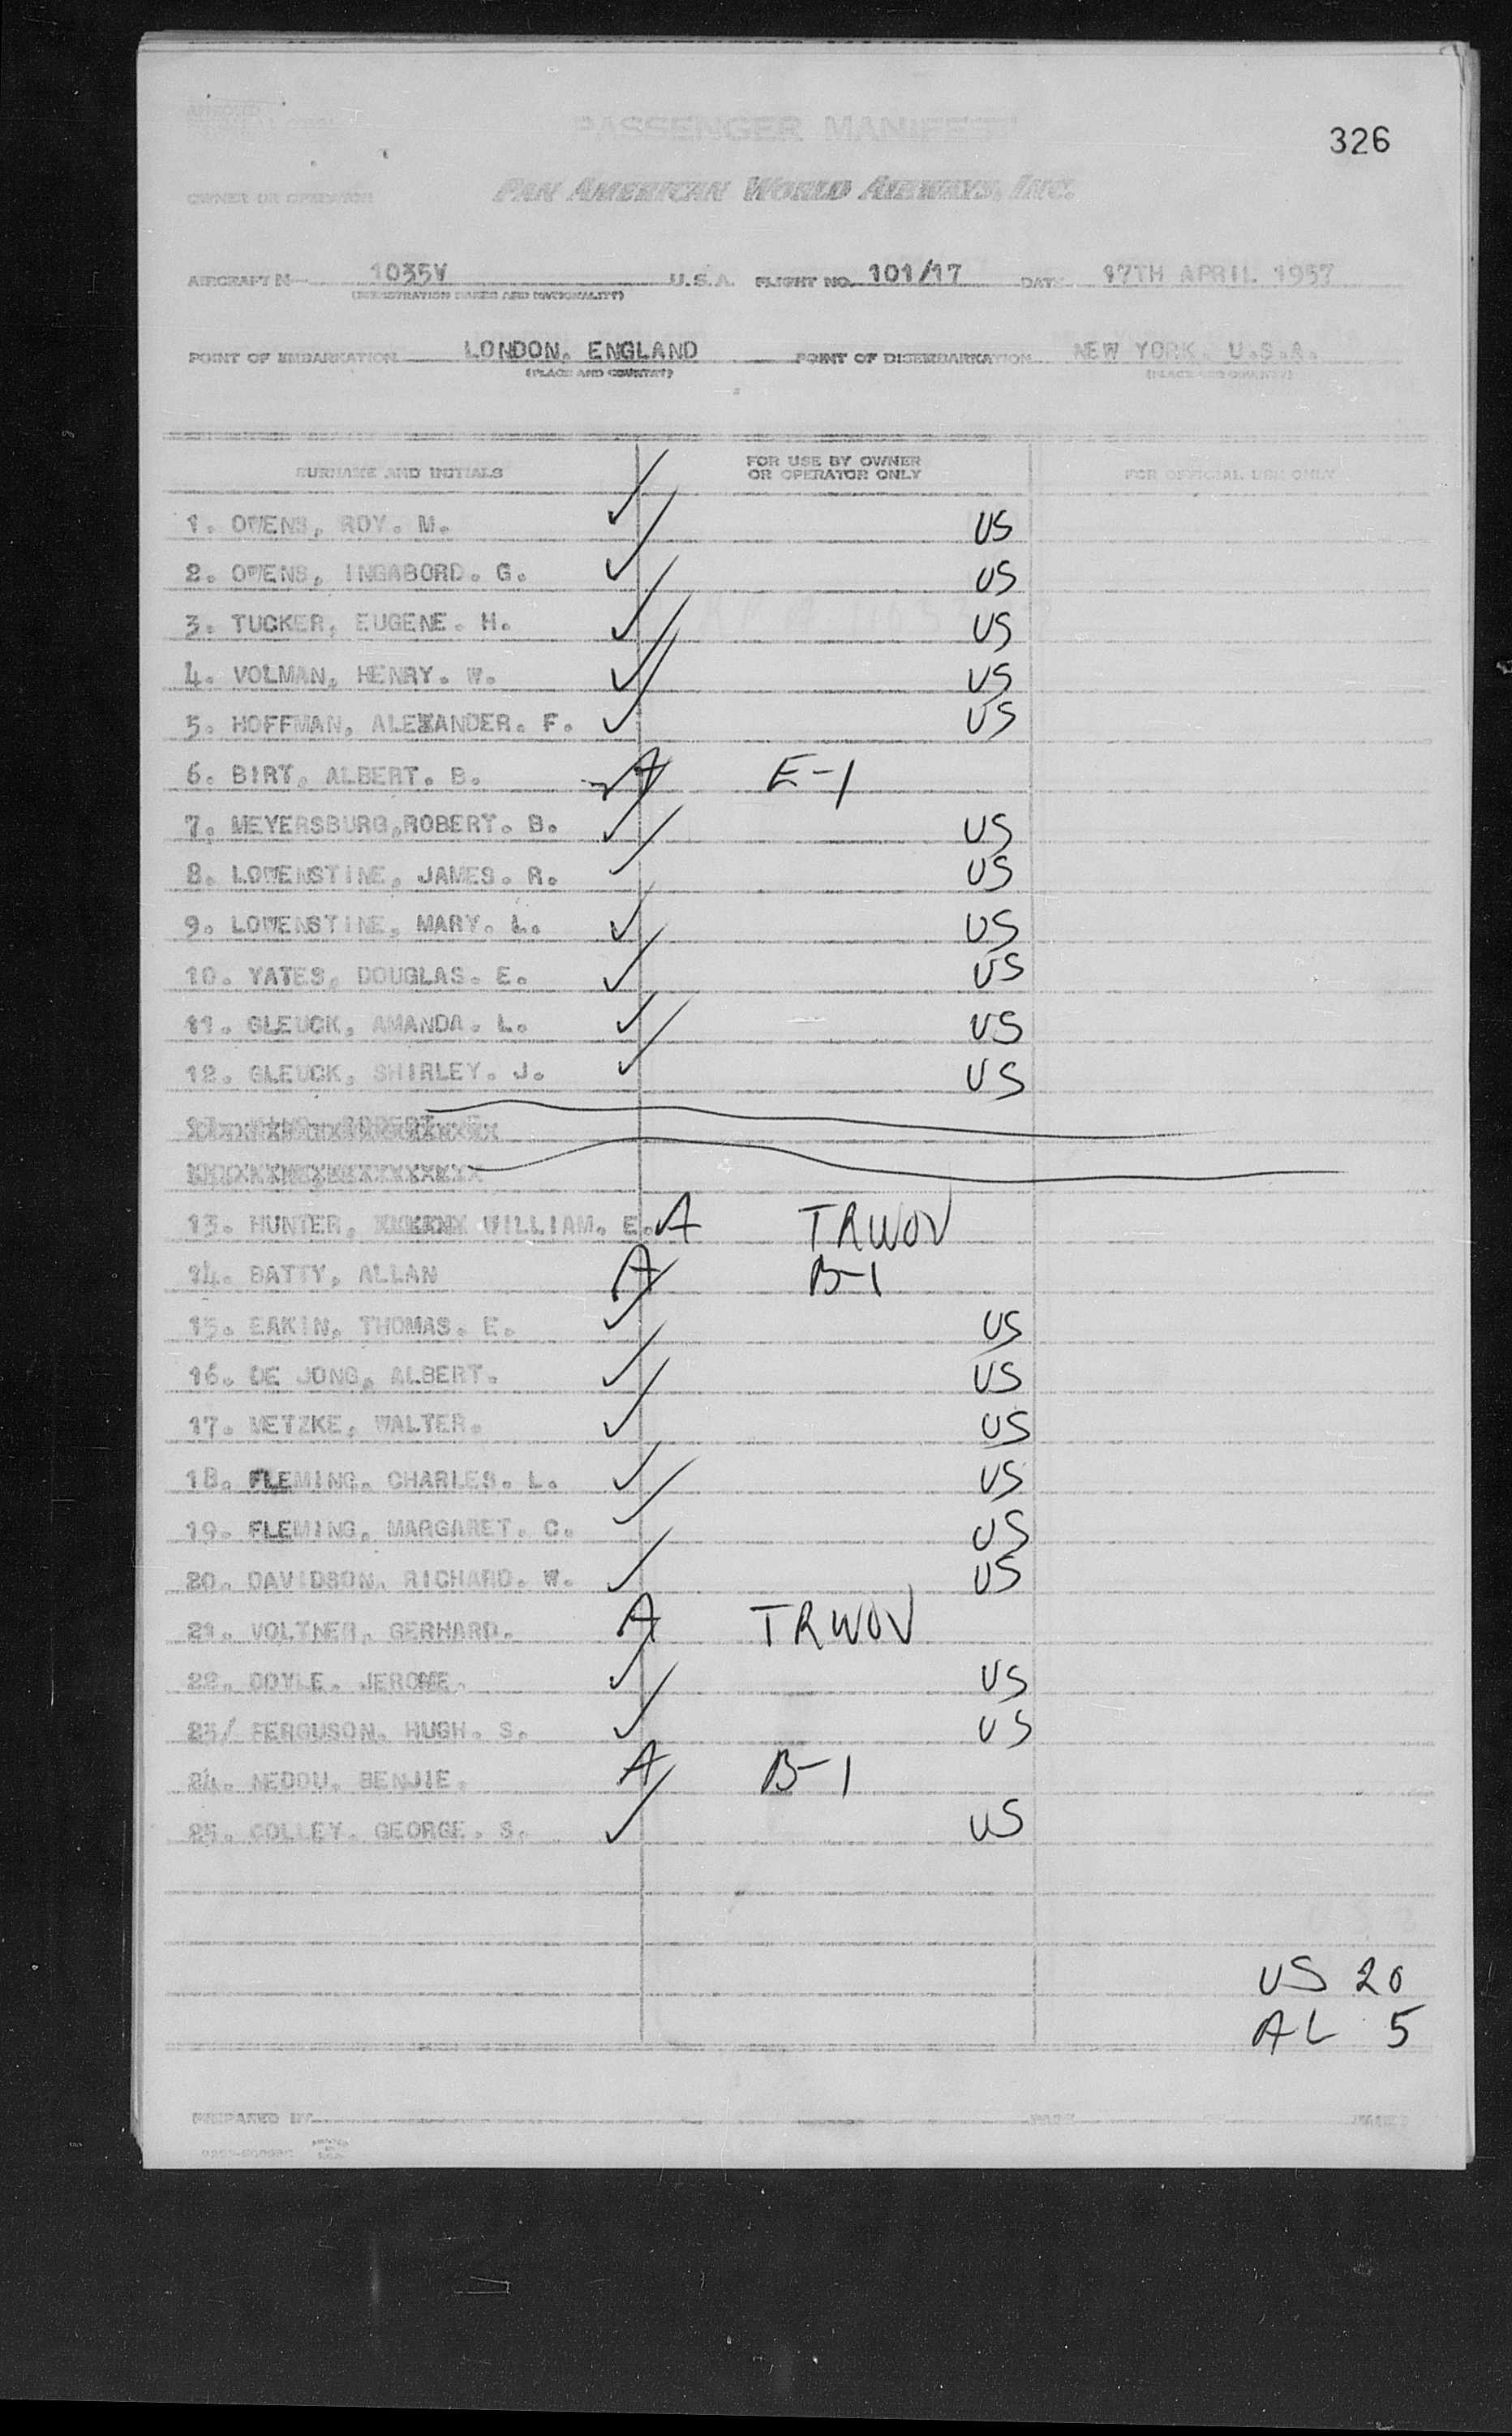 326
PASSENGER MANIFEST
OWNER OR OPERATOR PAN AMERICAN WORLD AIRWAYS, INC.
AIRCRAFT N 1035V U.S.A. FLIGHT NO. 101/17 DATE 17TH APRIL 1957
(REGISTRATION MARKS AND NATIONALITY)
POINT OF EMBARKATION LONDON, ENGLAND POINT OF DISEMBARKATION NEW YORK U.S.A.
(PLACE AND COUNTRY) (PLACE AND COUNTRY)
SURNAME AND INITIALS FOR USE BY OWNER OR OPERATOR ONLY FOR OFFICIAL USE ONLY
1. OWENS, ROY. M. US
2. OWENS, INGABORD. G. US
3. TUCKER, EUGENE. H. US
4. VOLMAN, HENRY. W. US
5. HOFFMAN, ALEXANDER. F. US
6. BIRT, ALBERT. B. A E-1
7. MEYERSBURG,ROBERT. B. US
8. LOWENSTINE, JAMES. R. US
9. LOWENSTINE, MARY. L. US
10. YATES, DOUGLAS. E. US
11. GLEUCK, AMANDA. L. US
12. GLEUCK, SHIRLEY. J. US
13. HUNTER, WILLIAM. E. A TRWOV
14. BATTY, ALLAN A B-1
15. EAKIN, THOMAS. E. US
16. DE JONG, ALBERT. US
17. METZKE, WALTER. US
18. FLEMING. CHARLES. L. US
19. FLEMING, MARGARET. C. US
20. DAVIDSON, RICHARD. W. US
21. VOLTNER, GERHARD. A TRWOV
22. DOYLE. JEROME. US
23/ FERGUSON. HUGH. S. US
24. NEDOU. BENJIE. A B-1
25. COLLEY. GEORGE. S. US
US 20
AL 5
PREPARED BY PAGE OF